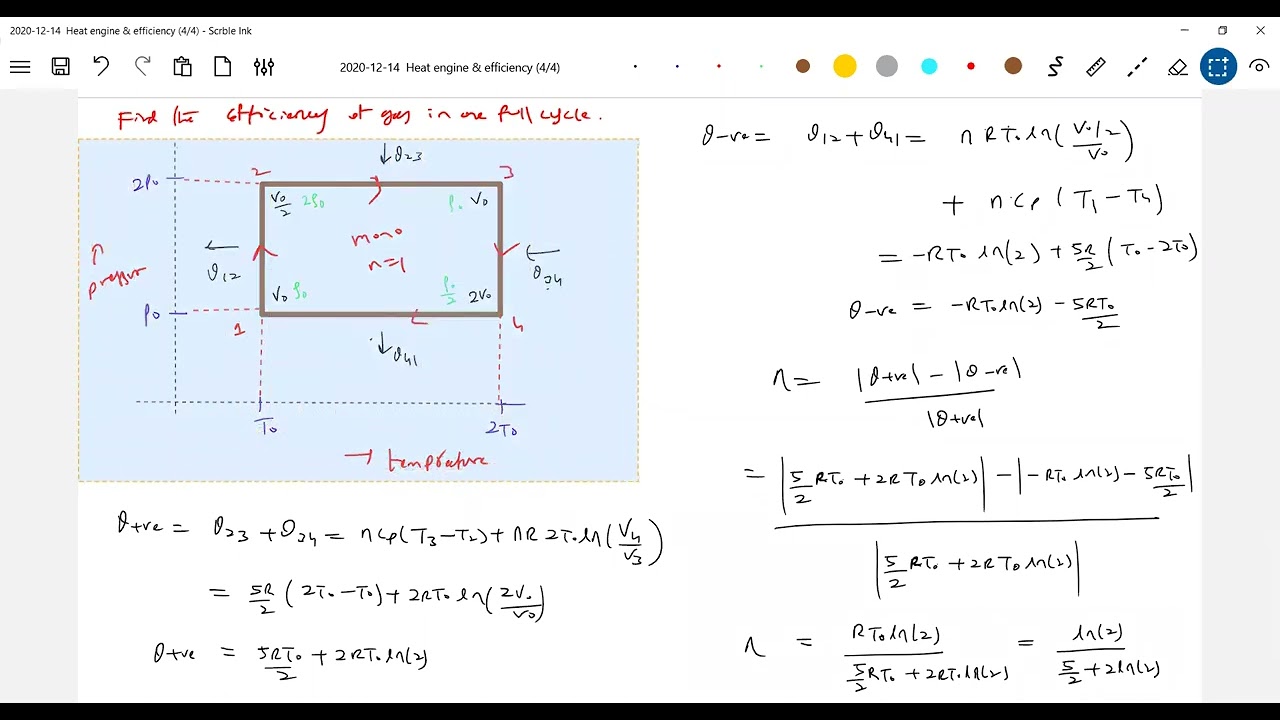 2020-12-14 Heat engine & efficiency (4/4) - Scrble Ink
2020-12-14 Heat engine & efficiency (4/4)
Find the efficiency of gas in one full cycle.
↓ Q23
2P0
2
3
V0/2 2ρ0
ρ0 V0
mono
n=1
↑ pressur
← Q12
← Q34
V0 ρ0
ρ0/2 2V0
P0
1
4
↓ Q41
T0
2T0
→ temprature
Q+ve = Q23 + Q34 = nCp(T3-T2) + nR 2T0 ln(V4/V3)
= 5R/2 (2T0 - T0) + 2RT0 ln(2V0/V0)
Q+ve = 5RT0/2 + 2RT0 ln(2)
Q-ve = Q12 + Q41 = nRT0 ln((V0/2)/V0)
+ n·Cp (T1 - T4)
= -RT0 ln(2) + 5R/2 (T0 - 2T0)
Q-ve = -RT0 ln(2) - 5RT0/2
η = (|Q+ve| - |Q-ve|)/|Q+ve|
= (|5/2 RT0 + 2RT0 ln(2)| - |-RT0 ln(2) - 5RT0/2|)/|5/2 RT0 + 2RT0 ln(2)|
η = RT0 ln(2)/(5/2 RT0 + 2RT0 ln(2)) = ln(2)/(5/2 + 2ln(2))